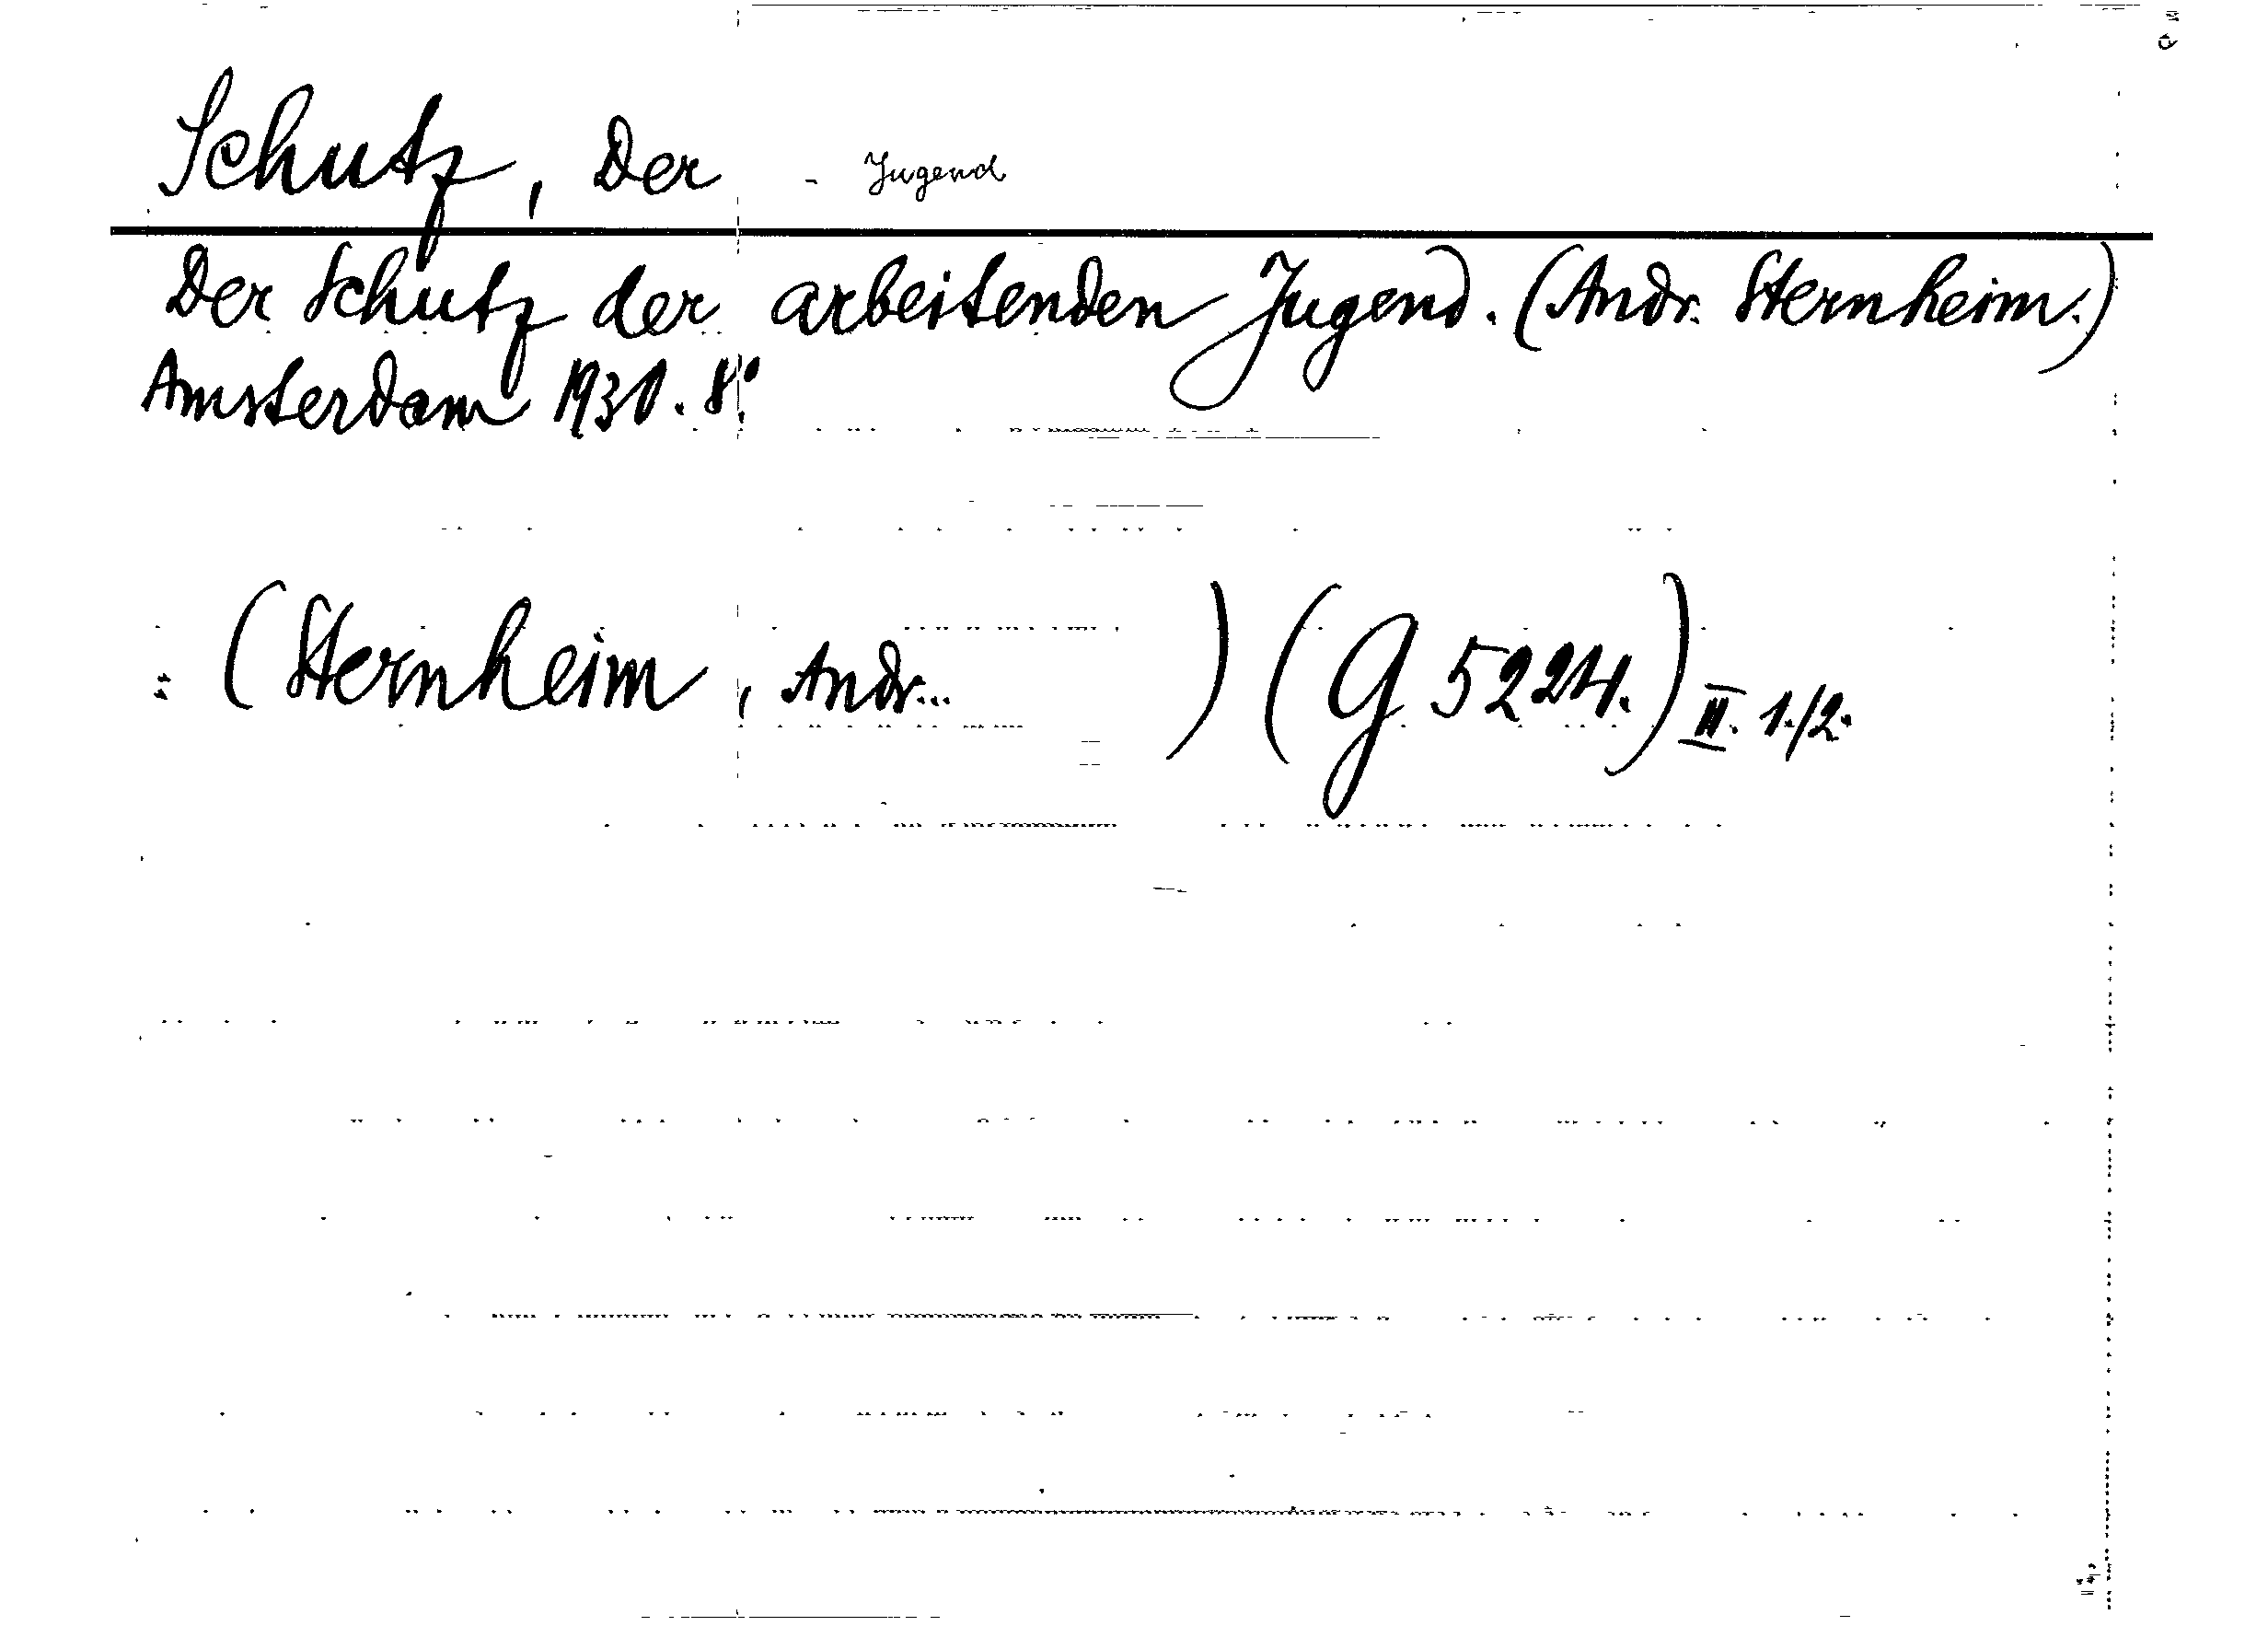 Schutz, Der - Jugend
Der Schutz der arbeitenden Jugend. (Andr. Sternheim.)
Amsterdam 1930. 8°.
(Sternheim, Andr... ) (G 5224.) II. 1./2.